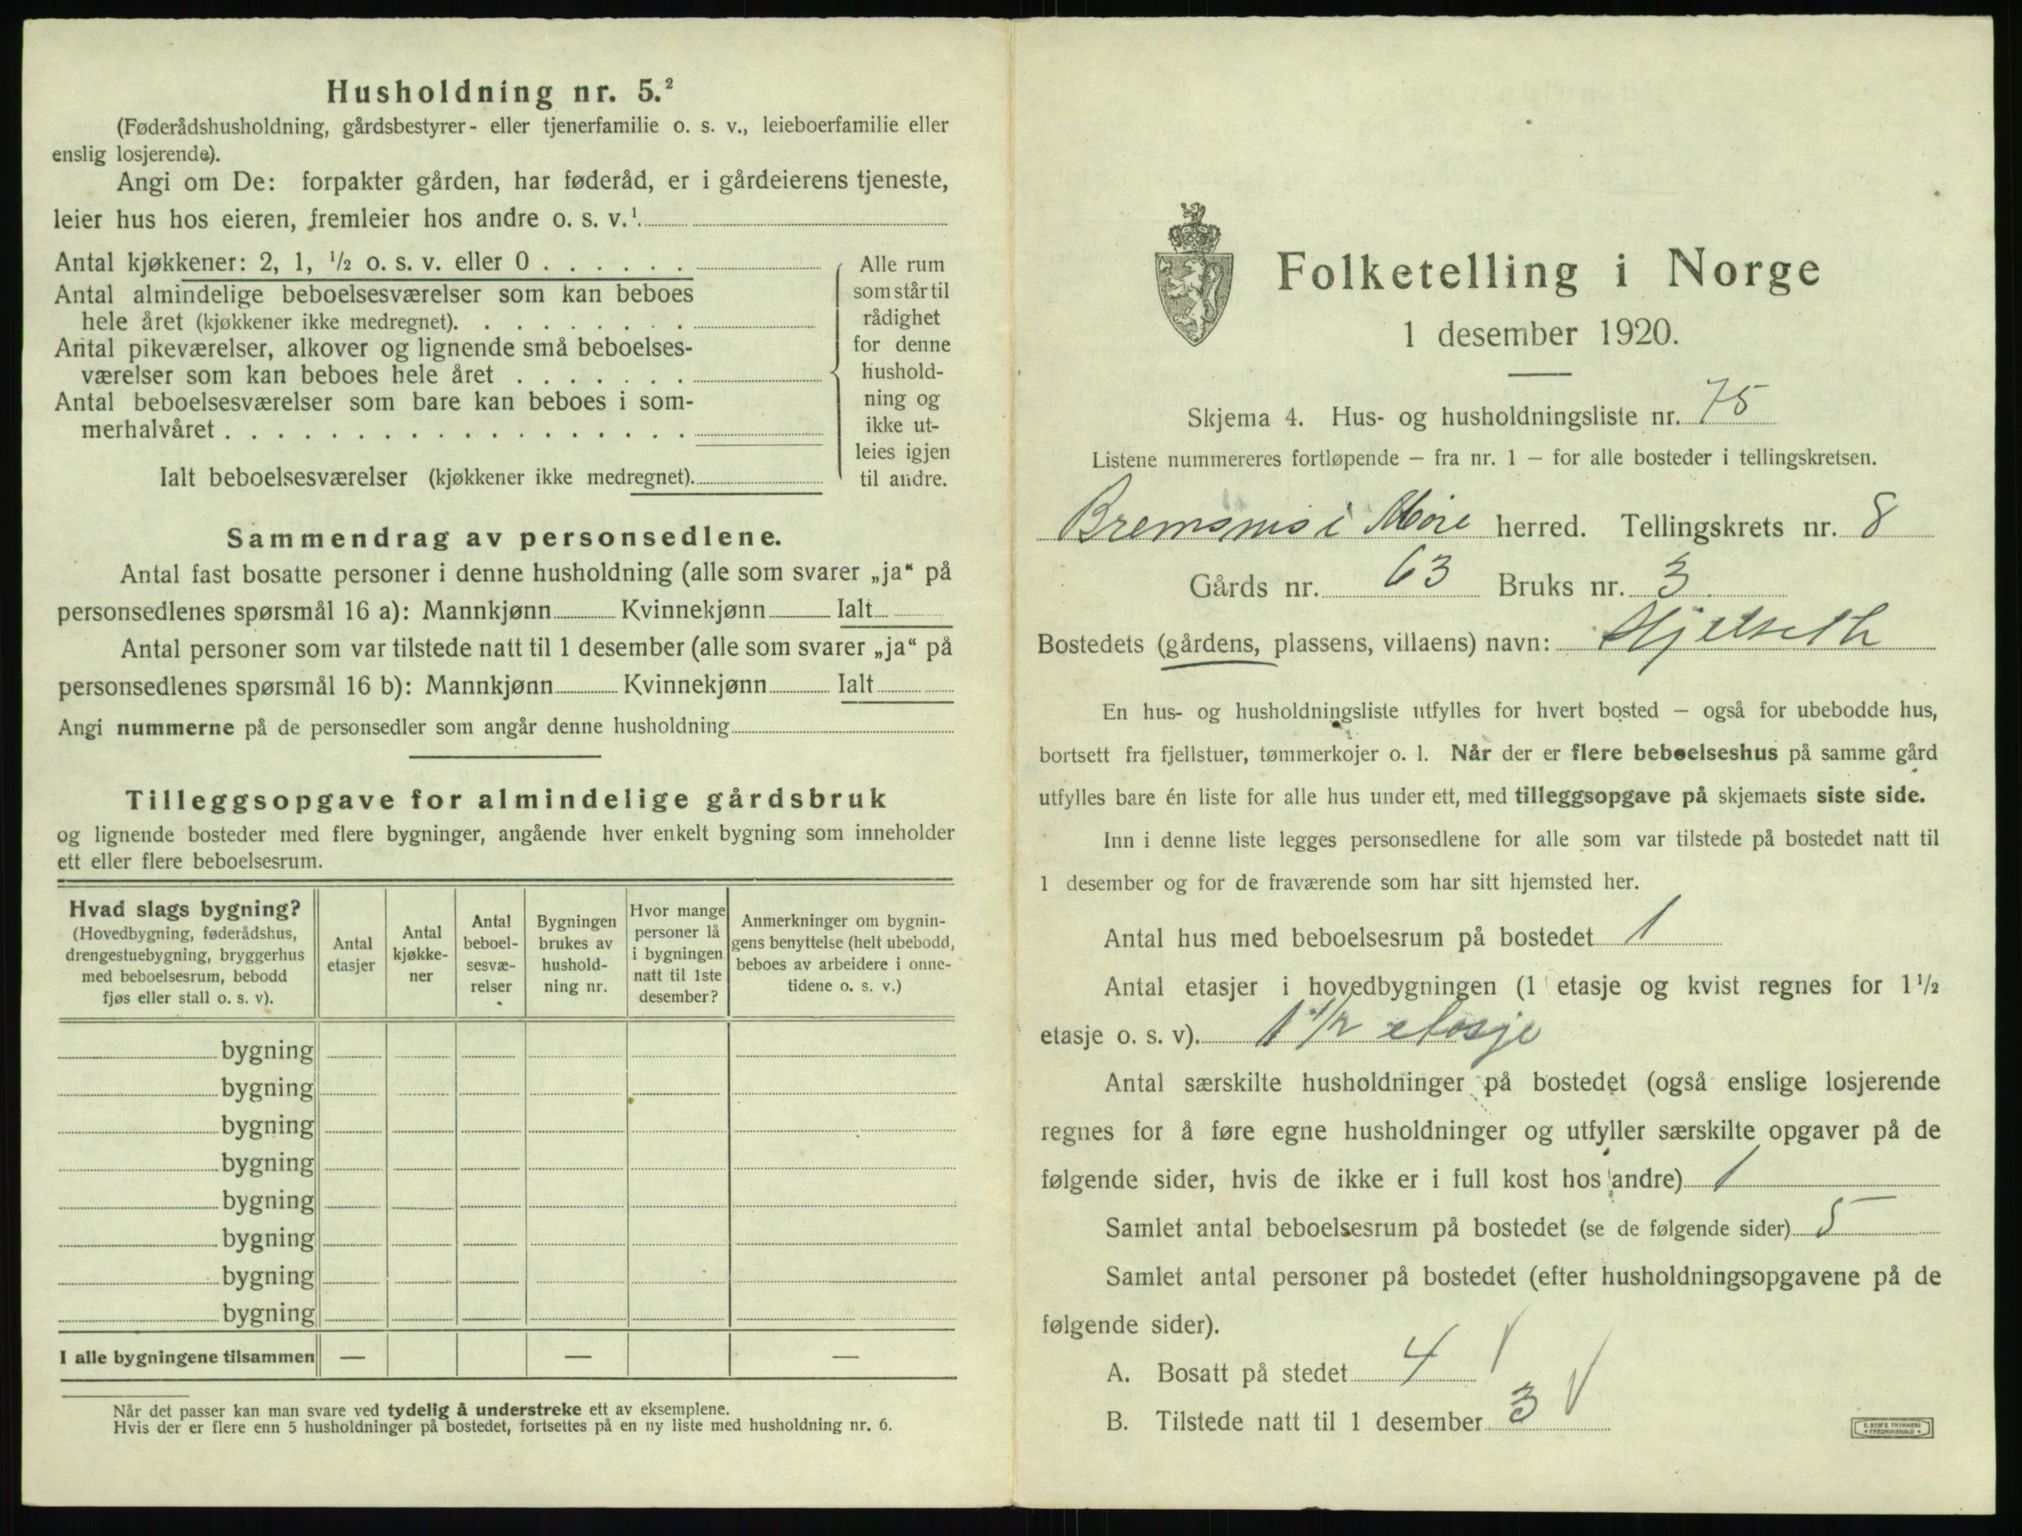 Husholdning nr. 5.²
(Føderådshusholdning, gårdsbestyrer- eller tjenerfamilie o. s. v., leieboerfamilie eller
enslig losjerende).
Angi om De: forpakter gården, har føderåd, er i gårdeierens tjeneste,
leier hus hos eieren, fremleier hos andre o. s. v.¹
Antal kjøkkener: 2, 1, ½ o. s. v. eller 0 . . . . . .
Antal almindelige beboelsesværelser som kan beboes
hele året (kjøkkener ikke medregnet). . . . . . . . .
Antal pikeværelser, alkover og lignende små beboelses-
værelser som kan beboes hele året . . . . . . .
Antal beboelsesværelser som bare kan beboes i som-
merhalvåret . . . . . . . . . . . . . . . . . .
Ialt beboelsesværelser (kjøkkener ikke medregnet).
Alle rum
som står til
rådighet
for denne
hushold-
ning og
ikke ut-
leies igjen
til andre.
Sammendrag av personsedlene.
Antal fast bosatte personer i denne husholdning (alle som svarer „ja“ på
personsedlenes spørsmål 16 a): Mannkjønn Kvinnekjønn Ialt
Antal personer som var tilstede natt til 1 desember (alle som svarer „ja“ på
personsedlenes spørsmål 16 b): Mannkjønn Kvinnekjønn Ialt
Angi nummerne på de personsedler som angår denne husholdning
Tilleggsopgave for almindelige gårdsbruk
og lignende bosteder med flere bygninger, angående hver enkelt bygning som inneholder
ett eller flere beboelsesrum.
Hvad slags bygning?
(Hovedbygning, føderådshus,
drengestuebygning, bryggerhus
med beboelsesrum, bebodd
fjøs eller stall o. s. v).
Antal
etasjer
Antal
kjøkke-
ner
Antal
beboel-
sesvæ-
relser
Bygningen
brukes av
hushold-
ning nr.
Hvor mange
personer lå
i bygningen
natt til 1ste
desember?
Anmerkninger om bygnin-
gens benyttelse (helt ubebodd,
beboes av arbeidere i onne-
tidene o. s. v.)
bygning
bygning
bygning
bygning
bygning
bygning
bygning
bygning
I alle bygningene tilsammen — — —
Når det passer kan man svare ved tydelig å understreke ett av eksemplene.
Hvis der er flere enn 5 husholdninger på bostedet, fortsettes på en ny liste med husholdning nr. 6.
Folketelling i Norge
1 desember 1920.
Skjema 4. Hus- og husholdningsliste nr. 75
Listene nummereres fortløpende – fra nr. 1 – for alle bosteder i tellingskretsen.
Bremsnes i Møre herred. Tellingskrets nr. 8
Gårds nr. 63 Bruks nr. 3
Bostedets (gårdens, plassens, villaens) navn: Hjelseth
En hus- og husholdningsliste utfylles for hvert bosted – også for ubebodde hus,
bortsett fra fjellstuer, tømmerkojer o. l. Når der er flere beboelseshus på samme gård
utfylles bare én liste for alle hus under ett, med tilleggsopgave på skjemaets siste side.
Inn i denne liste legges personsedlene for alle som var tilstede på bostedet natt til
1 desember og for de fraværende som har sitt hjemsted her.
Antal hus med beboelsesrum på bostedet 1
Antal etasjer i hovedbygningen (1 etasje og kvist regnes for 1½
etasje o. s. v). 1 1/2 etasje
Antal særskilte husholdninger på bostedet (også enslige losjerende
regnes for å føre egne husholdninger og utfyller særskilte opgaver på de
følgende sider, hvis de ikke er i full kost hos andre) 1
Samlet antal beboelsesrum på bostedet (se de følgende sider) 5
Samlet antal personer på bostedet (efter husholdningsopgavene på de
følgende sider).
A. Bosatt på stedet 4
B. Tilstede natt til 1 desember 3
E. SEM'S TRYKKERI
FREDRIKSHALD